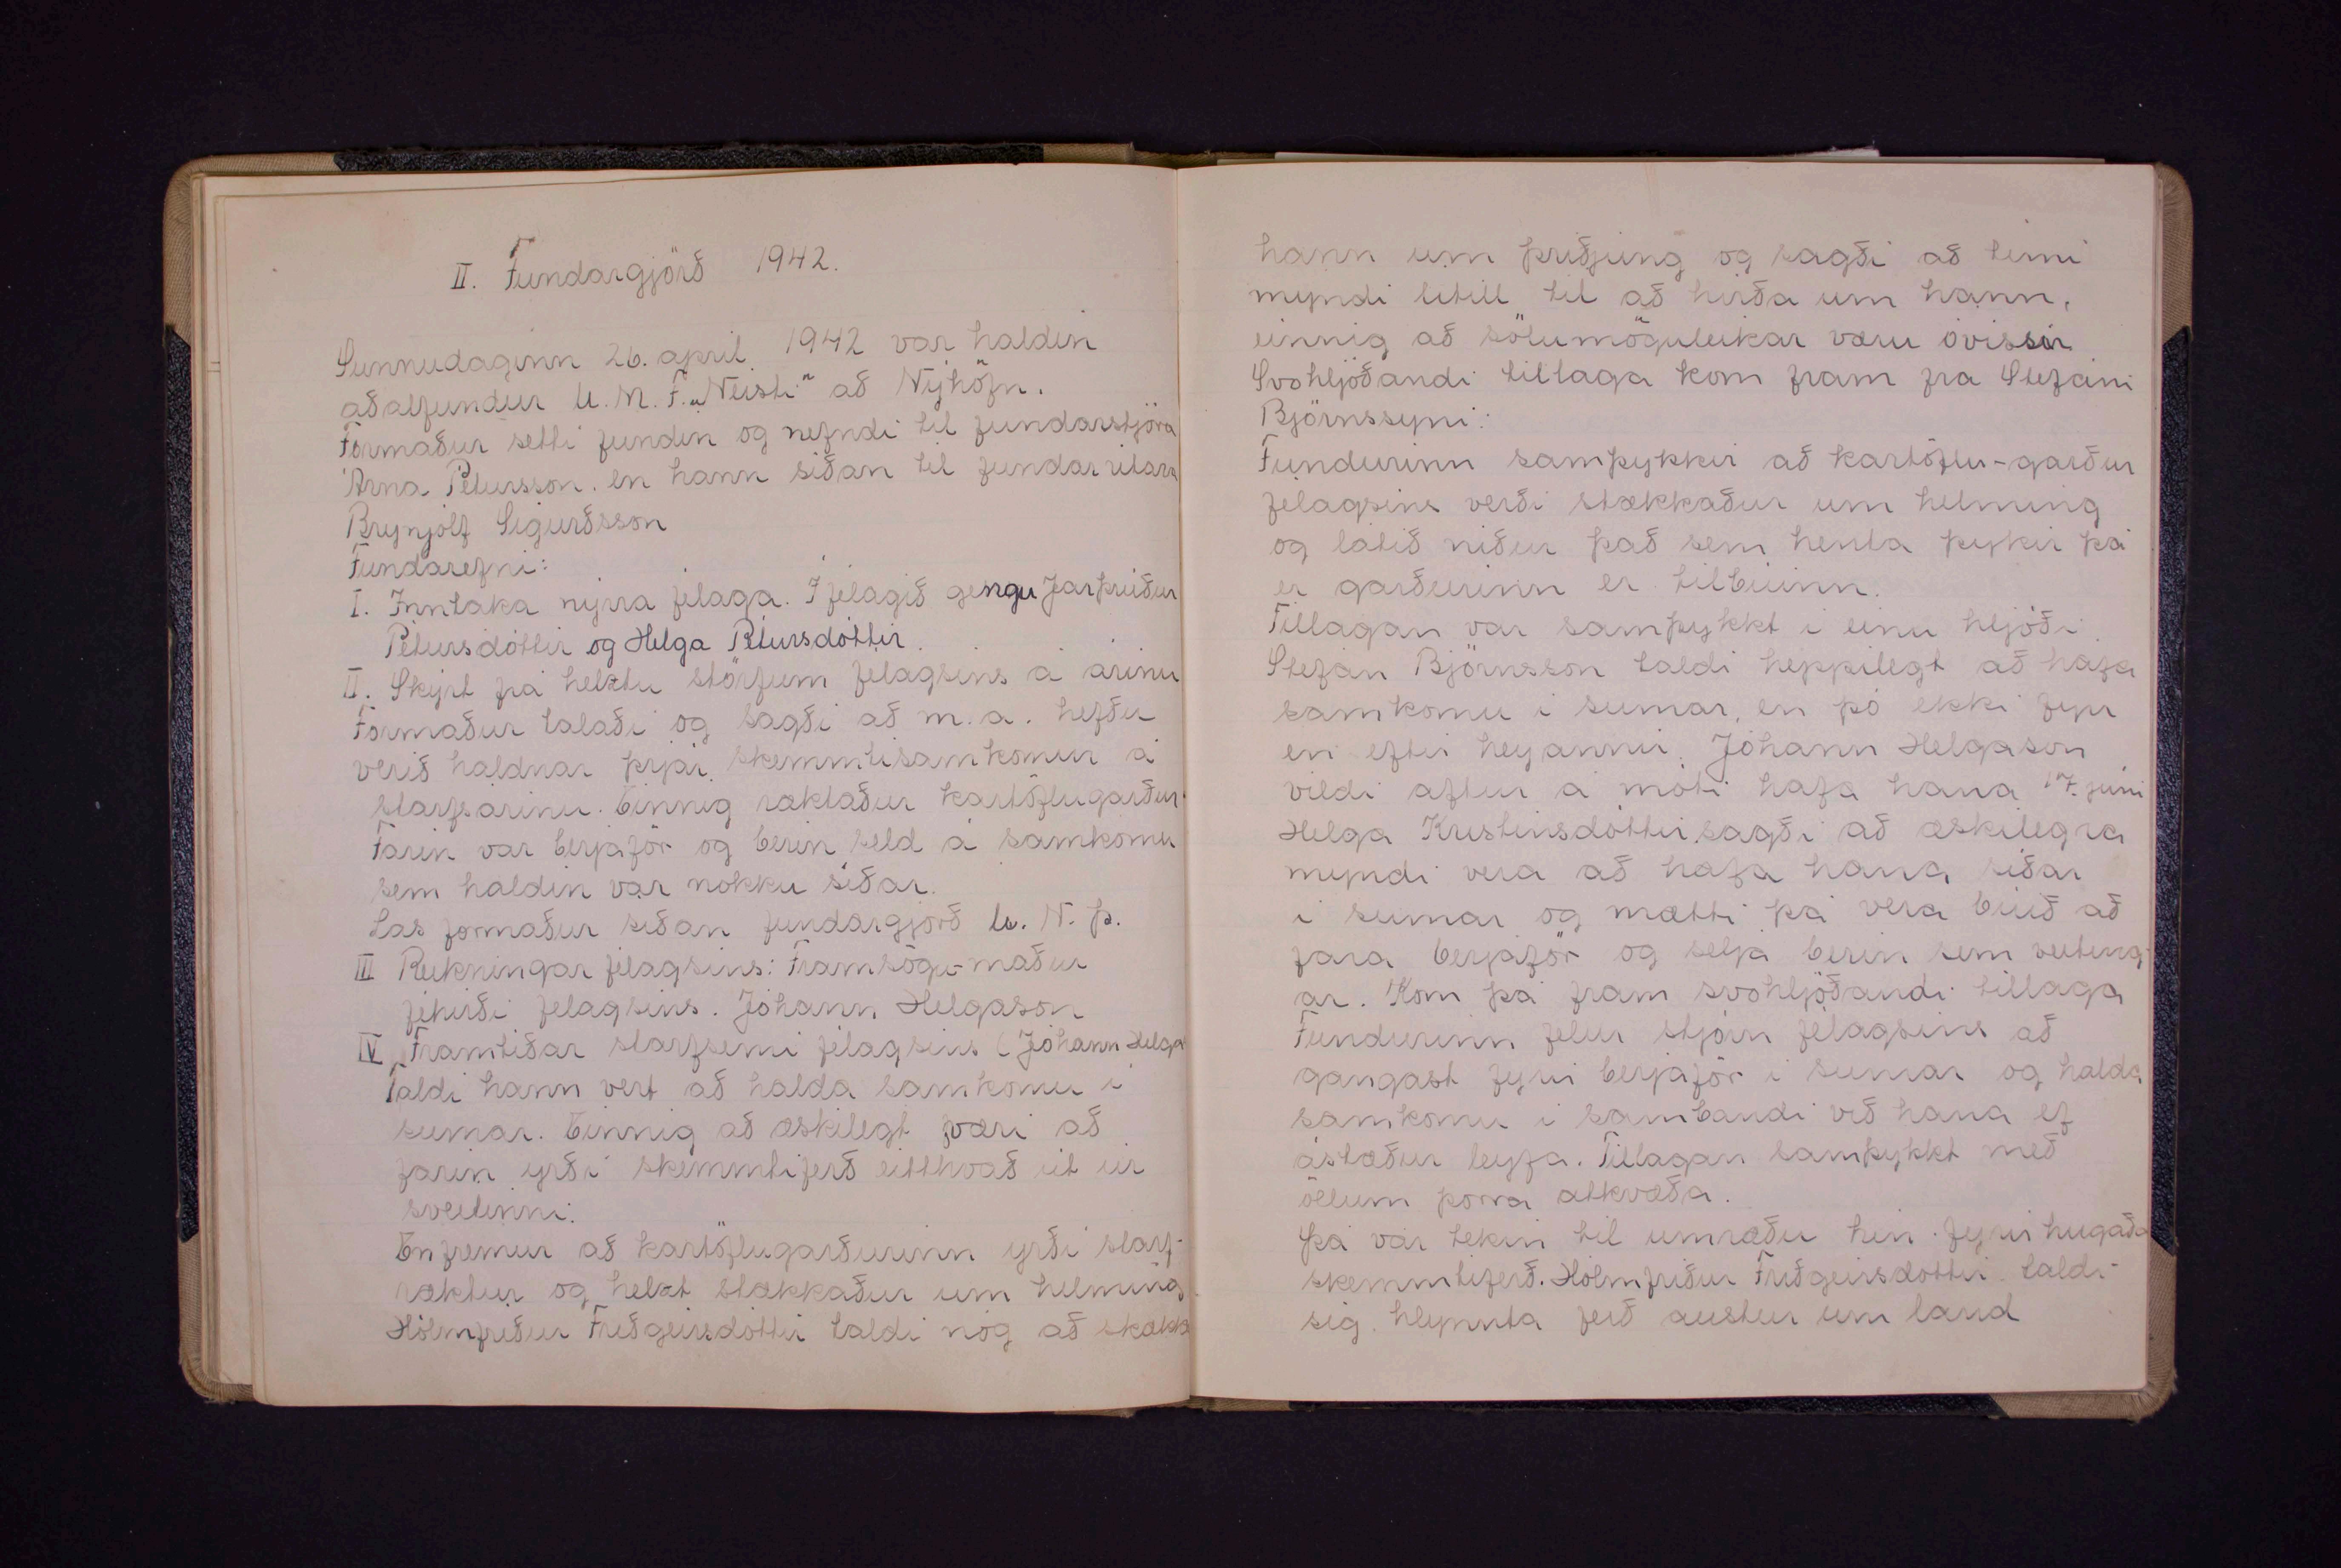 II. Fundargjörð 1942.
Sunnudaginn 26. apríl 1942 var haldin
aðalfundur U. M. F. „Neisti" að Nýhöfn.
Formaður setti fundin og nefndi til fundarstjóra
Árna Pétursson. en hann síðan til fundarritara
Brynjólf Sigurðsson
Fundarefni:
I. Inntaka nýrra félaga. Í félagið gengu Jarþrúður
Pétursdóttir og Helga Pétursdóttir.
II. Skýrt frá helztu störfum félagsins á árinu
Formaður talaði og sagði að m.a. hefðu
verið haldnar þrjár skemmtisamkomur á
starfsárinu. Einnig ræktaður kartöflugarður.
Farin var berjaför og berin seld á samkomu
sem haldin var nokku síðar.
Las formaður síðan fundargjörð U. N. Þ.
III Reikningar félagsins: Framsögu-maður
féhirði félagsins. Jóhann Helgason
IV Framtíðar starfsemi félagsins (Jóhann Helga
Taldi hann vert að halda samkomu í
sumar. Einnig að æskilegt væri að
farin yrði skemmtiferð eitthvað út úr
sveitinni.
Enfremur að kartöflugarðurinn yrði starf-
ræktur og helzt stækkaður um helming
Hólmfríður Friðgeirsdóttir taldi nóg að stækka
hann um þriðjung og sagði að tími
myndi lítill til að hirða um hann,
einnig að sölumöguleikar væru óvissir
Svohljóðandi tillaga kom fram frá Stefáni
Björnssyni:
Fundurinn samþykkir að kartöflu-garður
félagsins verði stækkaður um helming
og látið niður það sem henta þykir þá
er garðurinn er tilbúinn.
Tillagan var samþykkt í einu hljóði.
Stefán Björnsson taldi heppilegt að hafa
samkomu í sumar, en þó ekki fyr
en eftir heyannir. Jóhann Helgason
vildi aftur á móti hafa hana 17. júní
Helga Kristinsdóttir sagði að æskilegra
myndi vera að hafa hana síðar
í sumar og mætti þá vera búið að
fara berjaför og selja berin sem veiting-
ar. Kom þá fram svohljóðandi tillaga
Fundurinn felur stjórn félagsins að
gangast fyrir berjaför í sumar og halda
samkomu í sambandi við hana ef
ástæður leyfa. Tillagan samþykkt með
öllum þorra atkvæða.
Þá var tekin til umræðu hin fyrirhugaða
skemmtiferð. Hólmfríður Friðgeirsdóttir taldi
sig hlynnta ferð austur um land